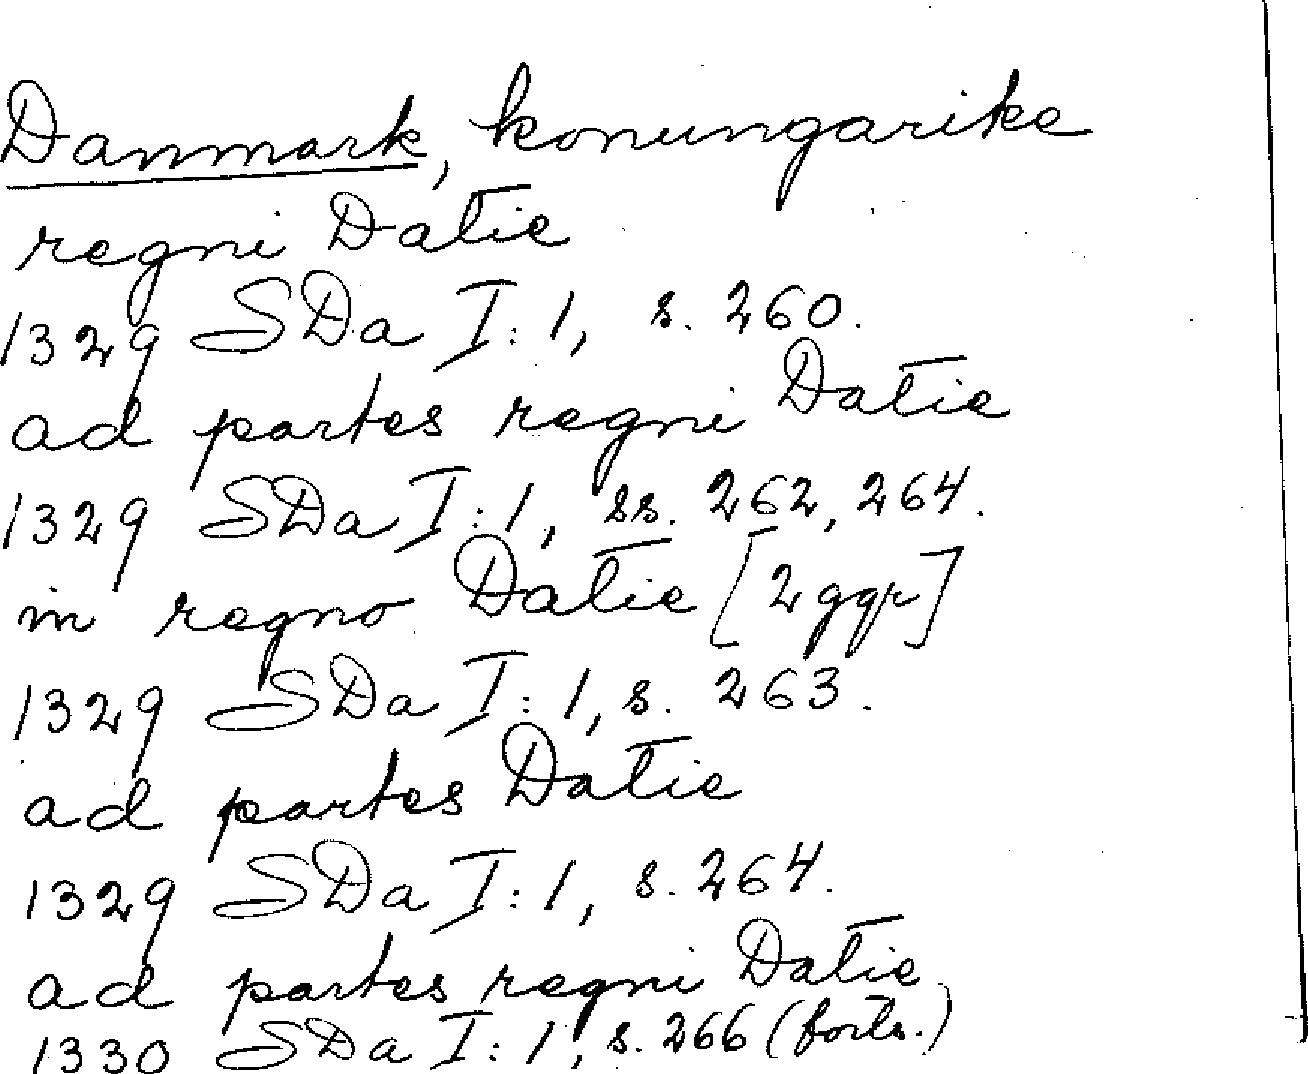 Danmark, konungarike
regni Datie
1329 SDa I:1, s. 260.
ad partes regni Datie
1329 SDa I:1, ss. 262, 264.
in regno Datie [2 ggr]
1329 SDa I:1, s. 263.
ad partes Datie
1329 SDa I:1, s. 264.
ad partes regni Datie
1330 SDa I:1, s. 266 (forts.)